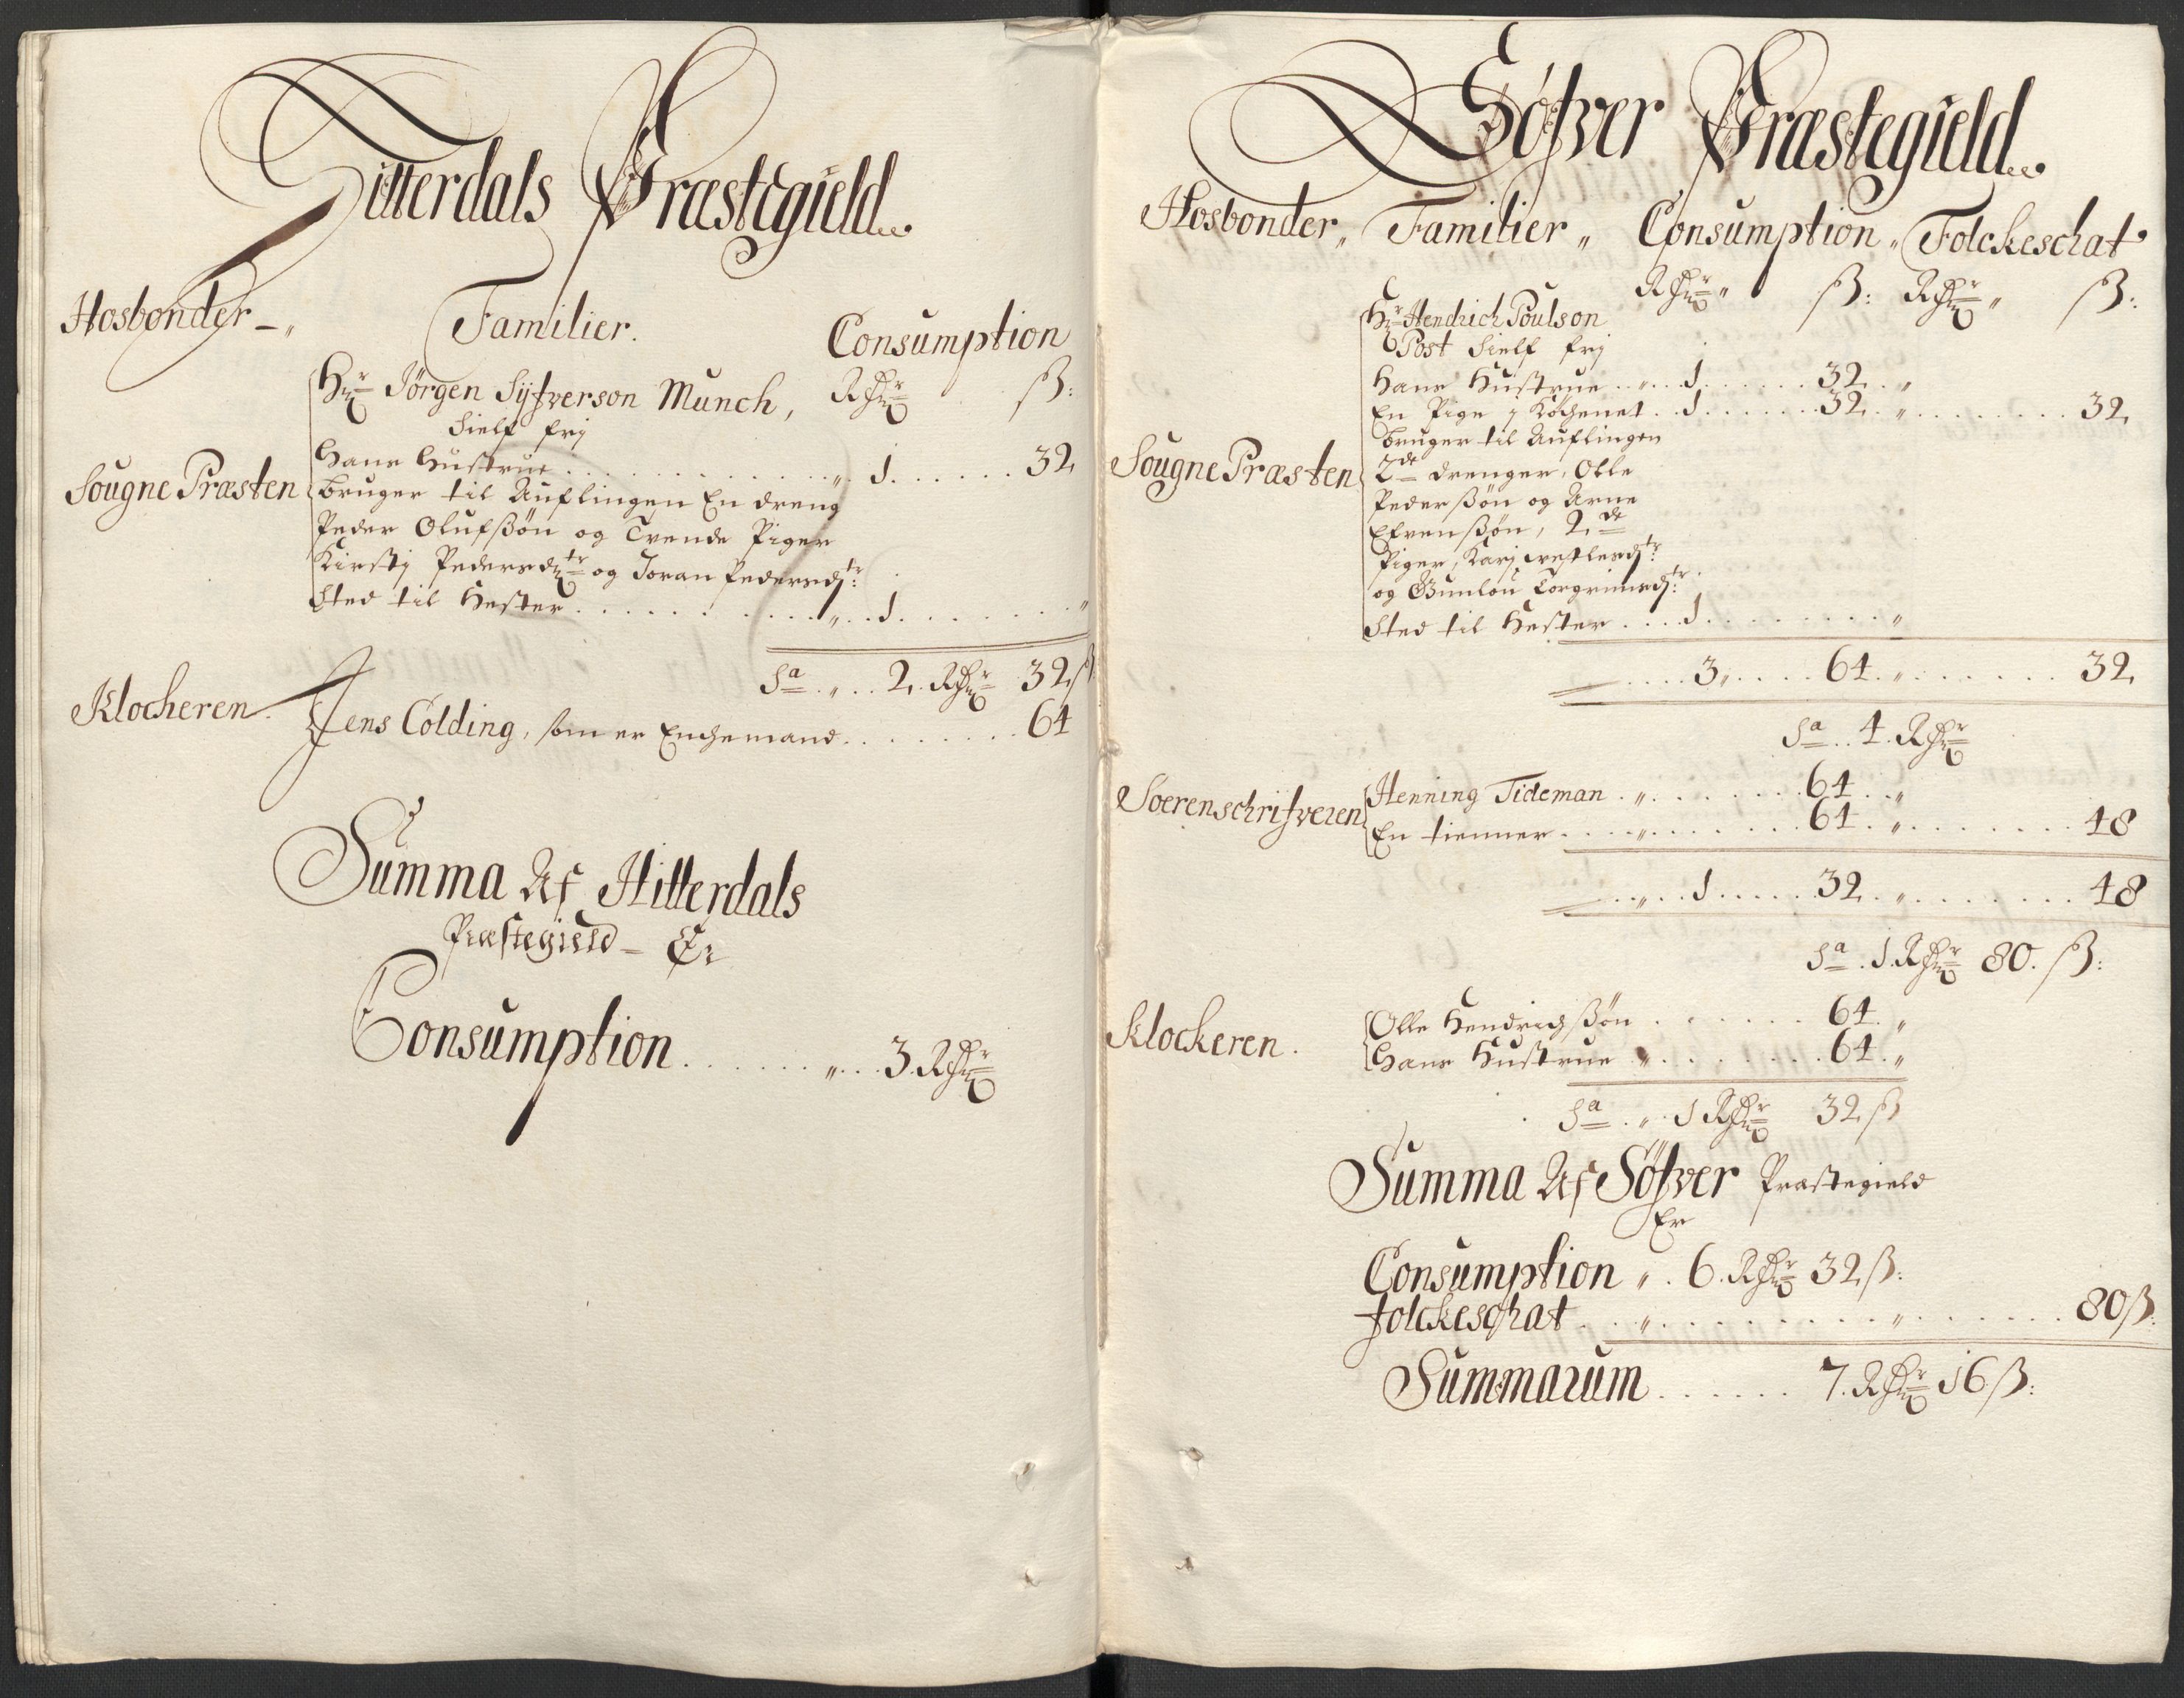 Hitterdals Præstegield
Hosbonder
Familier.
Consumption
Hr Jörgen Syfverson Munch, Rdr ß:
Sielf frj
Sougne Præsten
Hans Hustrue . . . . „ . 1 . . . . 32
bruger til Auflingen En dreng
Peder Olufßøn og Tvende Piger
Kirstj Pedersdtr og Joran Pedersdtr:
Sted til Hester . . . . „ . . 1 . . . . „
Sa „ . . 2. Rdr 32 ß
Klockeren. Jens Colding, som er Enchemand . . . . 64
Summa Af Hitterdals
Præstegield - Er
Consumption . . . . „ . . 3. Rdr
Söfver Præstegield
Hosbonder „ Familier „ Consumption „ Folckeschat
Rdr „ ß: Rdr „ ß:
Hr Hendrich Poulson
Post Sielf frj
Hans Hustrue . . „ . . 1 . . . . 32 . „
En Pige j Køchenet . . 1 . . . . 32 . „ . . . . 32
bruger til Auflingen
Sougne Præsten
2de drenger, Olle
Pederßøn og Arne
Efvenßøn, 2de
Piger, Karj
og Gunlou Torgrimsdtr:
Sted til Hester . . . . 1 . . . . „
. . . . 3 „ . . . . 64 . „ . . . . 32
Sa . . 4. Rdr
Soerenschrifveren
Henning Tideman . „ . . . . 64 . . „
En tienner . . . . „ . . . . 64 . „ . . . . 48
. . „ . . 1 . . . . 32 . „ . . . . 48
Sa . 1. Rdr 80. ß:
Klockeren.
Olle Hendrichßøn . . . . 64 . „
Hans Hustrue „ . . . . 64 . „
Sa . „ . 1 Rdr 32 ß
Summa Af Söfver Præstegield
Er
Consumption „ . 6. Rdr 32 ß:
folckeschat . . „ . . . . „ . . . . 80 ß:
Summarum . . . . 7. Rdr 16 ß: